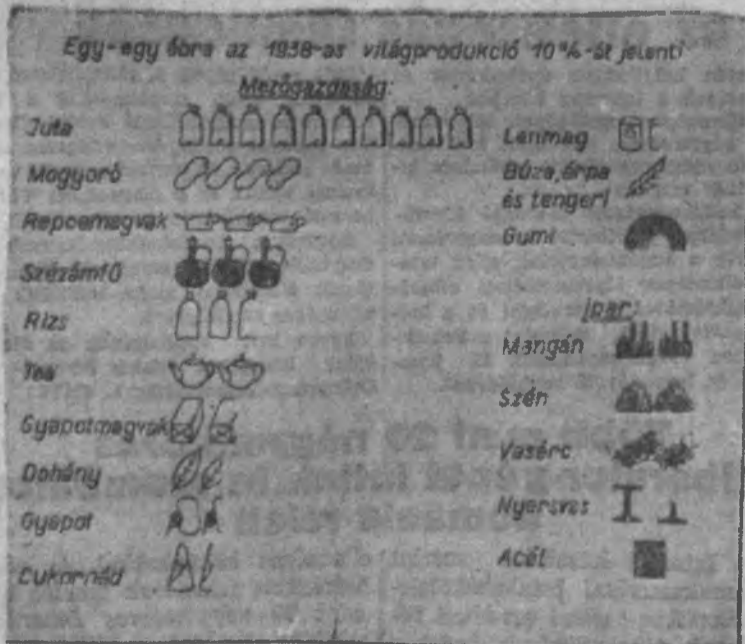 Egy-egy ábra az 1938-as világprodukció 10%-át jelenti
Mezőgazdaság:
Juta
Mogyoró
Repcemagvak
Szézámfű
Rizs
Tea
Gyapotmagvak
Dohány
Gyapot
Cukornád
Lenmag
Búza, árpa
és tengeri
Gumi
Ipar:
Mangán
Szén
Vasérc
Nyersvas
Acél